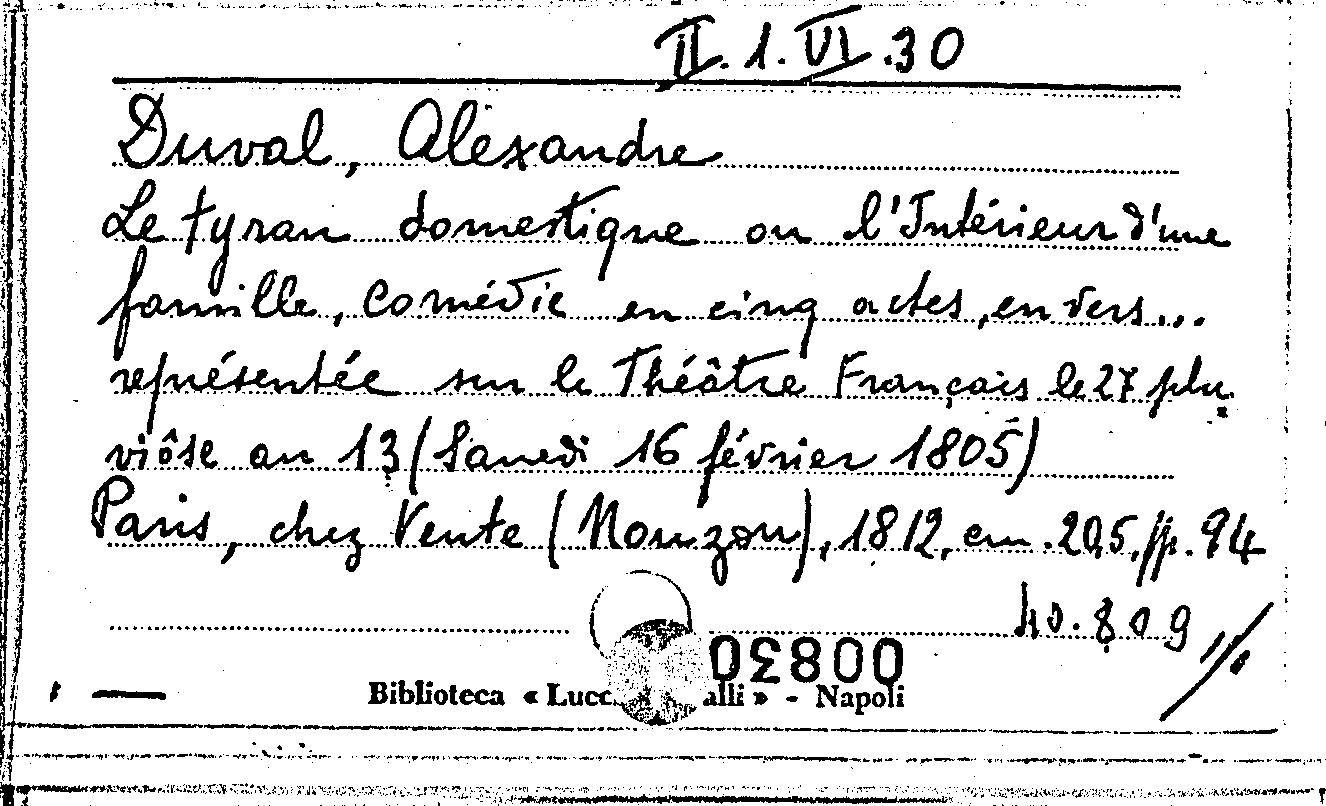 II.1.VI.30
Duval, Alexandre
Le tyran domestique ou l'Intérieur d'une
famille, comédie en cinq actes, en vers...
représentée sur le Théâtre Français le 27 plu
viôse an 13 (Samedi 16 février 1805)
Paris, chez Vente (Mouzon), 1812, cm. 20,5, pp. 94
40.809
00830
Biblioteca « Lucc alli » - Napoli